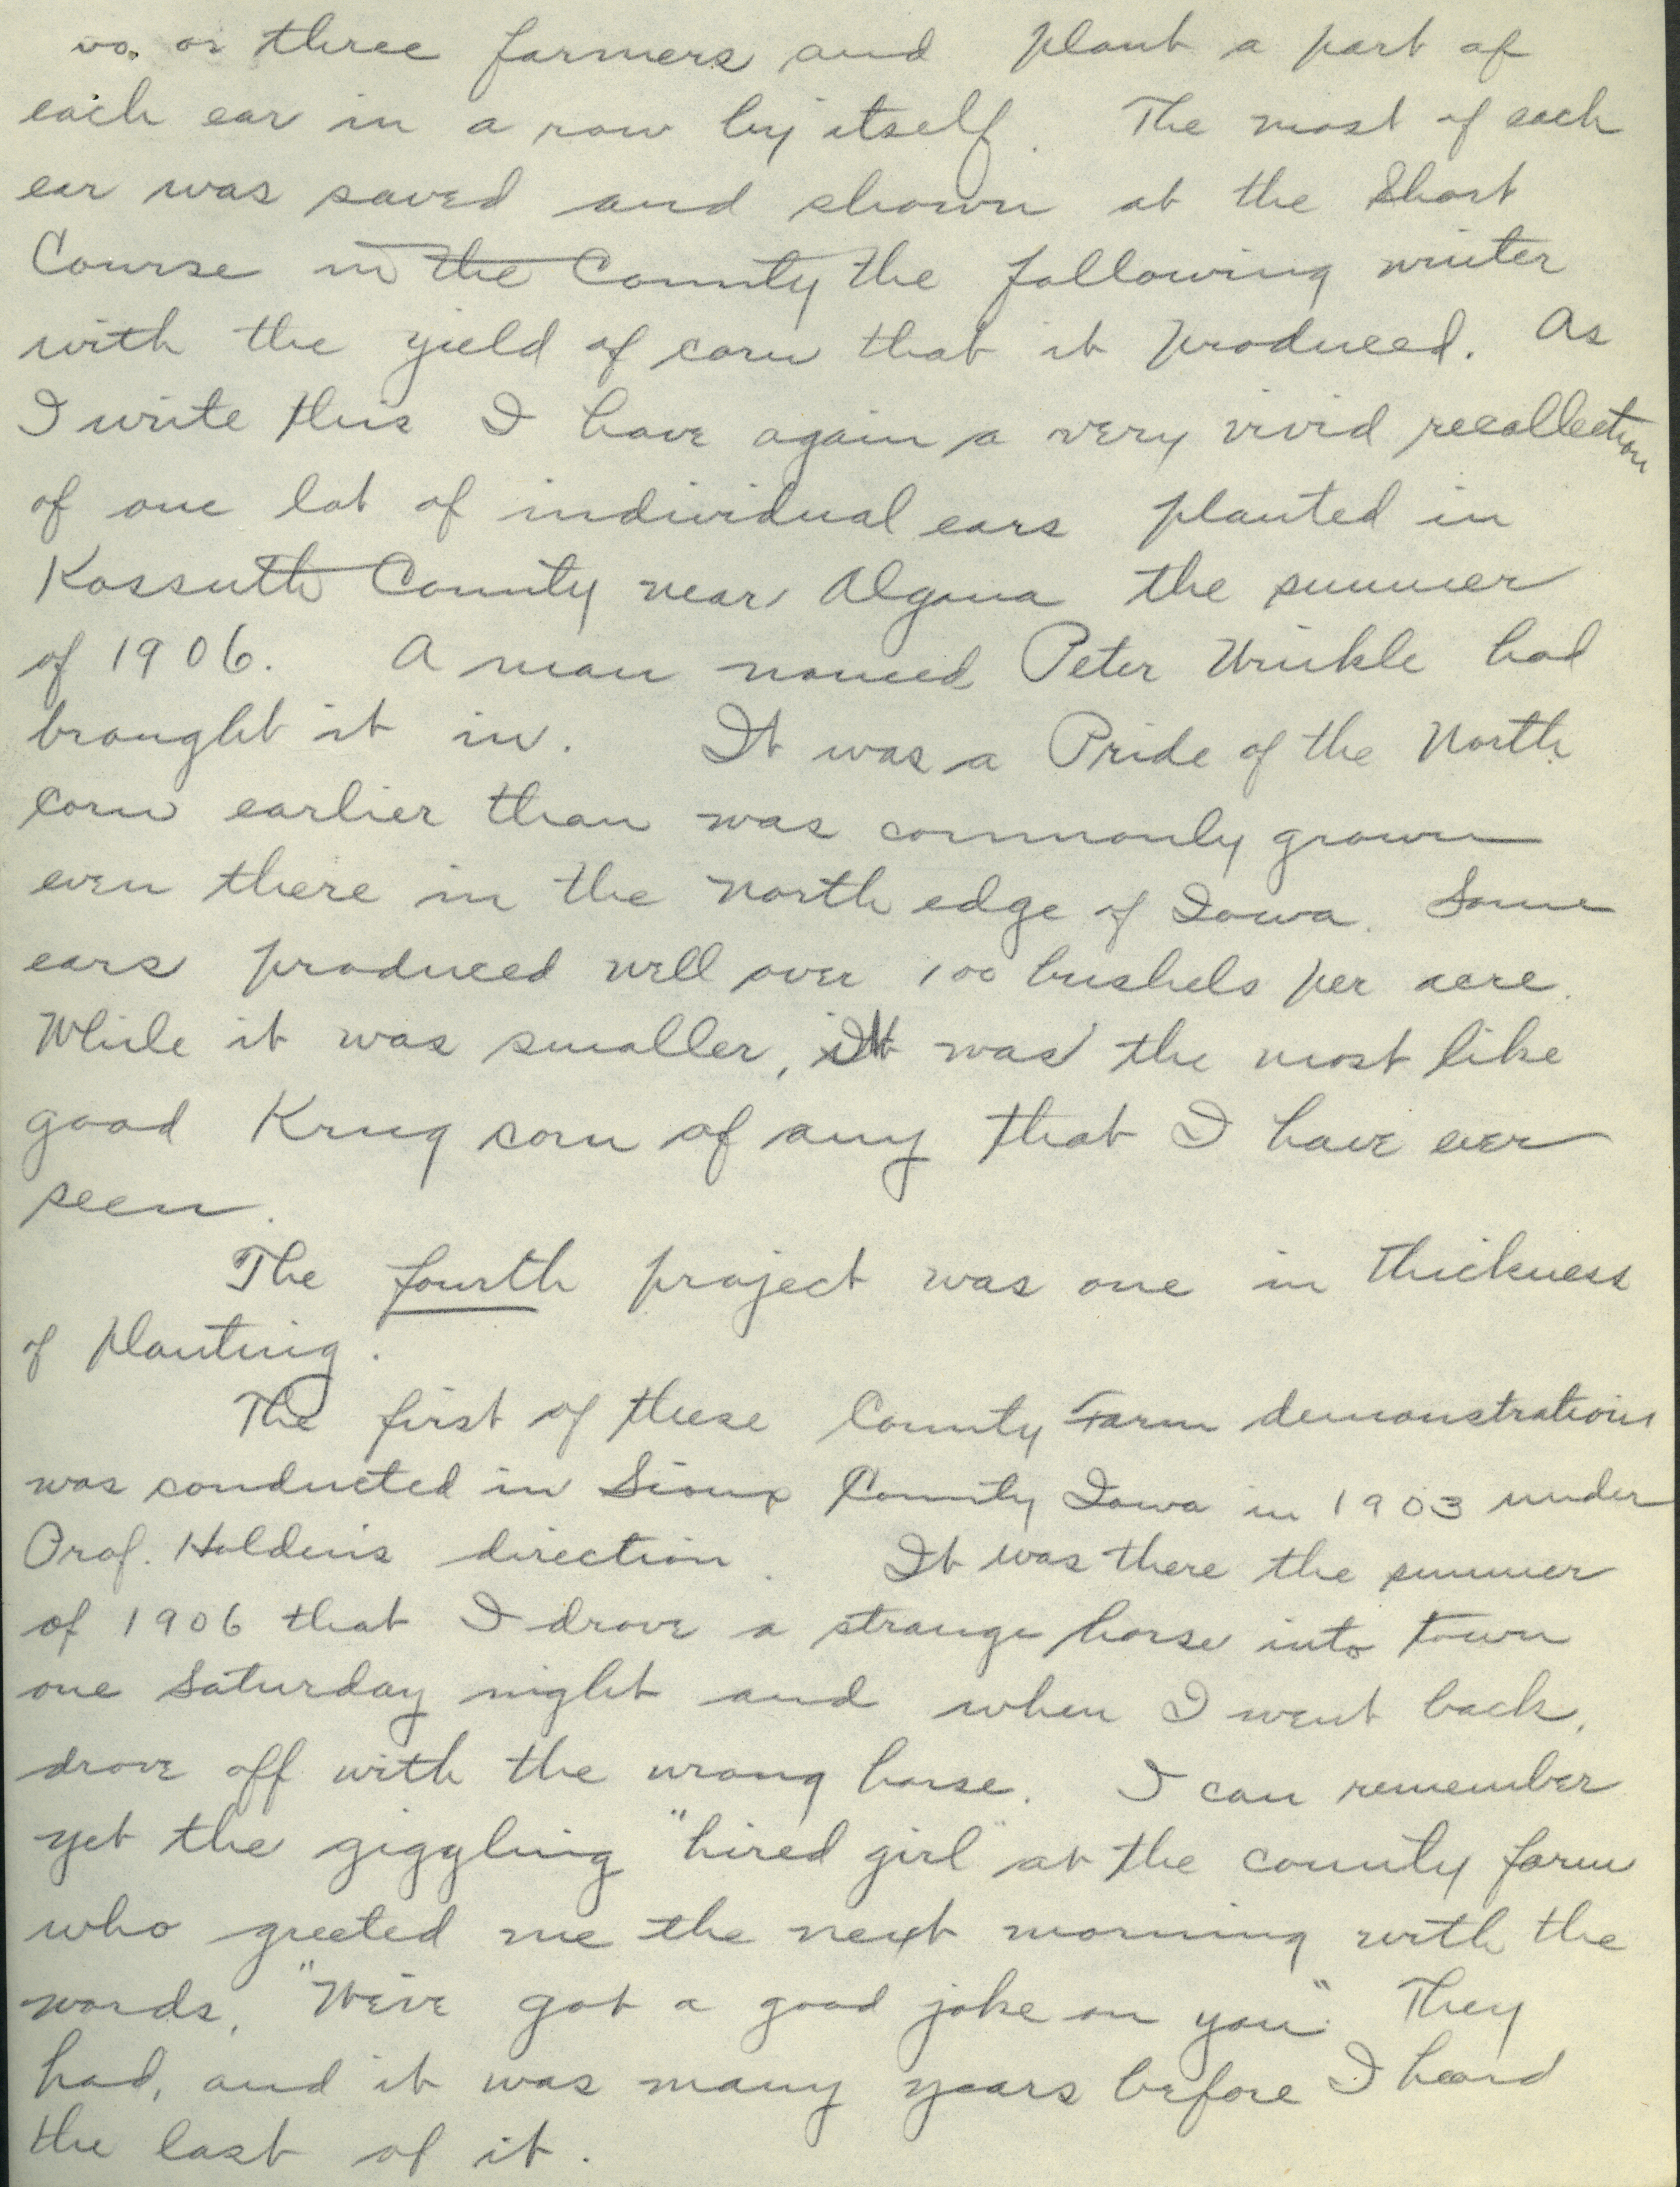 wo. or three farmers and plant a part of
each ear in a row by itself. The most of each
ear was saved and shown at the Short
Course in the County the following winter
with the yield of corn that it produced. As
I write this I have again a very vivid recollection
of one lot of individual ears planted in
Kossuth County near Algona the summer
of 1906. A man named Peter Winkle had
brought it in. It was a Pride of the North
corn earlier than was commonly grown
even there in the north edge of Iowa. Some
ears produced well over 100 bushels per acre.
While it was smaller, it was the most like
good Krug corn of any that I have ever
seen.
The fourth project was one in thickness
of planting.
The first of these County Farm demonstrations
was conducted in Sioux County Iowa in 1903 under
Prof. Holden's direction. It was there the summer
of 1906 that I drove a strange horse into town
one Saturday night and when I went back,
drove off with the wrong horse. I can remember
yet the giggling "hired girl" at the county farm
who greeted me the next morning with the
words, "We've got a good joke on you". They
had, and it was many years before I heard
the last of it.